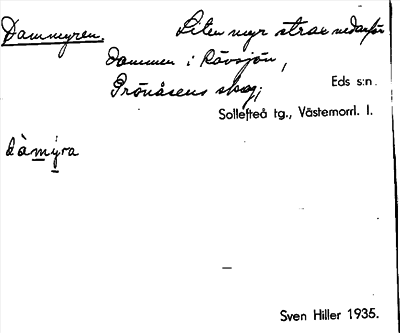 Dammyren. Liten myr strax nedanför
dammen i Rävsjön,
Grönåsens skog;
Eds s:n.
Sollefteå tg., Västernorrl. l.
dàmýra
Sven Hiller 1935.